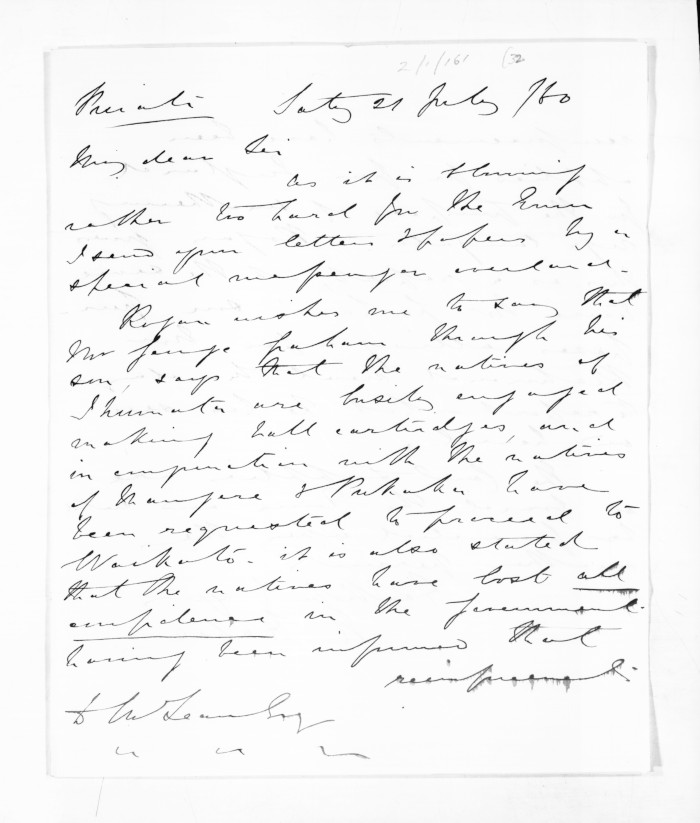 2/1/161 (32
Private Saty 21 July /60
My dear Sir
as it is blowing
rather too hard for the Emu
I send your letters & papers by a
special messenger overland.
Rogan wishes me to say that
Mr George Graham through his
son, says that the natives of
Ihumata are busily engaged
making ball cartridges, and
in conjunction with the natives
of Mangere & Pukaki have
been requested to proceed to
Waikato. it is also stated
that the natives have lost all
confidence in the Government
having been informed that
reinforcements
D McLean Esq
" " "